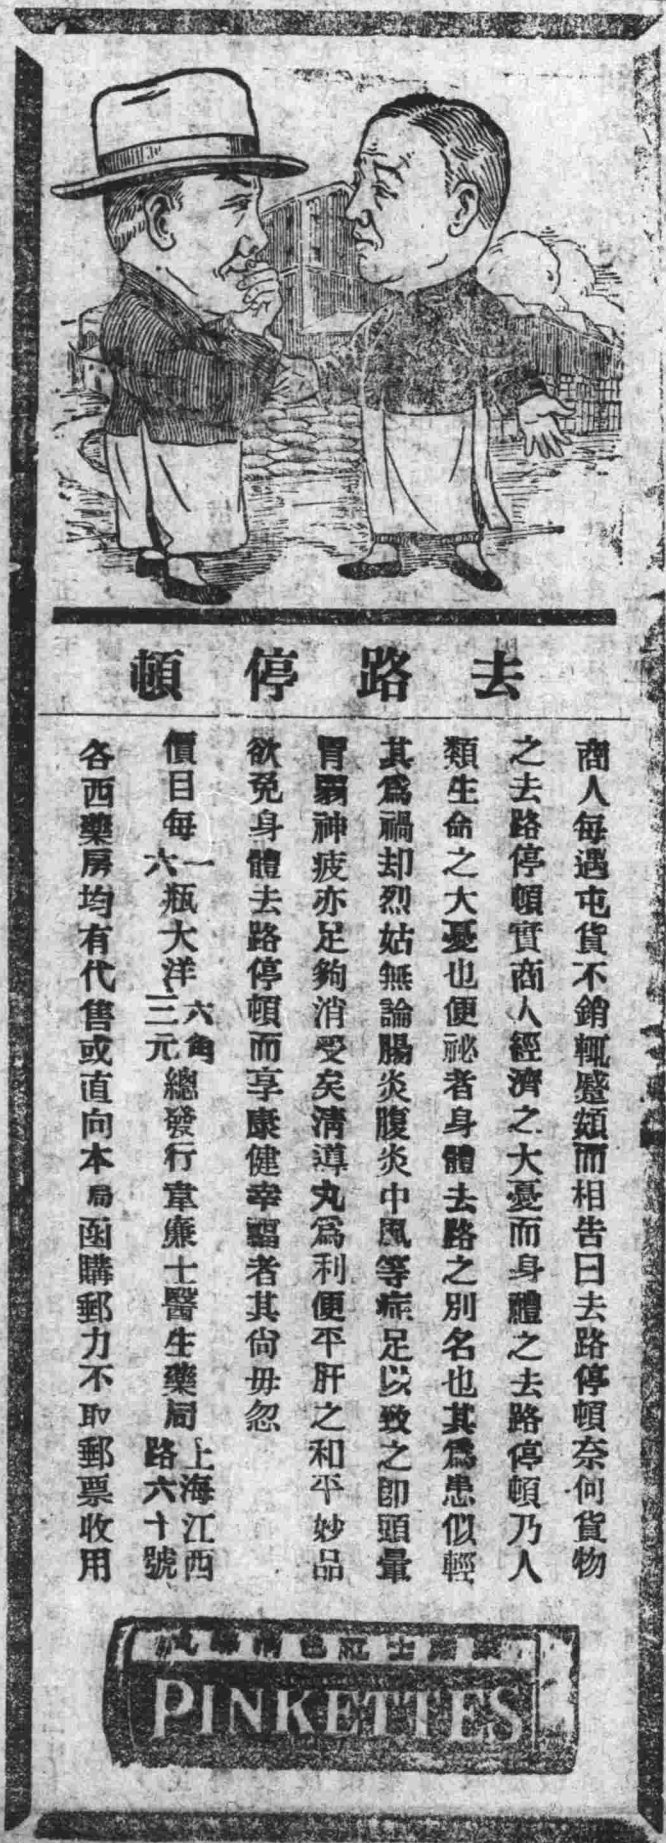 去路停頓
商人每遇屯貨不銷輒蹙頞而相告曰去路停頓奈何貨物
之去路停頓實商人經濟之大憂而身體之去路停頓乃人
類生命之大憂也便祕者身體去路之別名也其為患似輕
其為禍却烈姑無論腸炎腹炎中風等症足以致之卽頭暈
胃弱神疲亦足夠消受矣清導丸為利便平肝之和平妙品
欲免身體去路停頓而享康健幸福者其尙毋忽
價目每一瓶大洋六角
六瓶大洋三元
總發行韋廉士醫生藥局
上海江西
路六十號
各西藥房均有代售或直向本局函購郵力不取郵票收用
PINKETTES